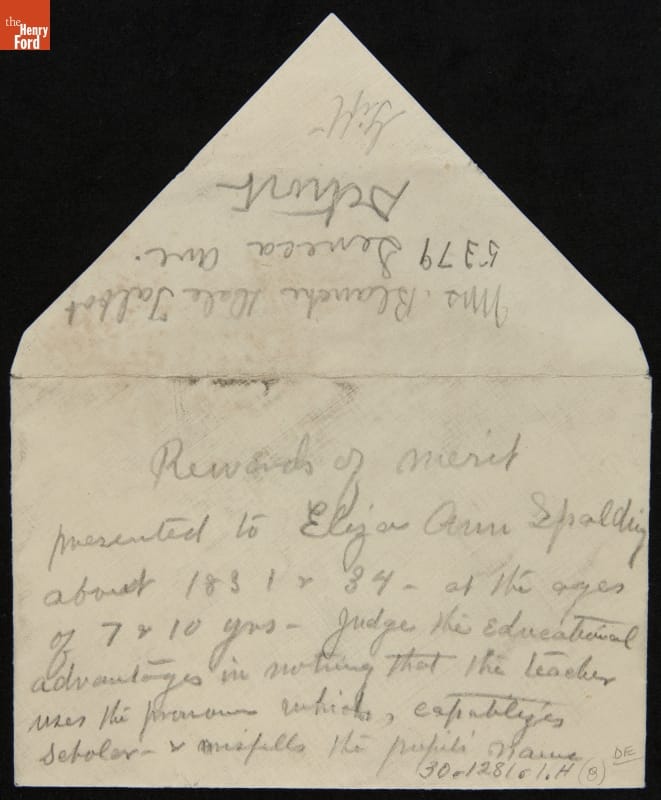 the
Henry
Ford
Gift
Detroit
5379 Seneca Ave.
Mrs. Blanche Hale Talbot
Rewards of merit
presented to Eliza Ann Spalding
about 1831 & 34 - at the ages
of 7 & 10 yrs - Judge the educational
advantages in noting that the teacher
uses the pronoun which, capatilizes
scholar - & mispells the pupils' name
30.1281.1.H (8)
DE